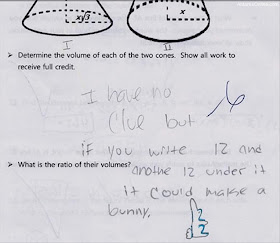 x√3
x
I
II
➤ Determine the volume of each of the two cones. Show all work to
receive full credit.
I have no
clue but
if you write 12 and
➤ What is the ratio of their volumes?
anothe 12 under it
it could makse a
bunny.
12
12